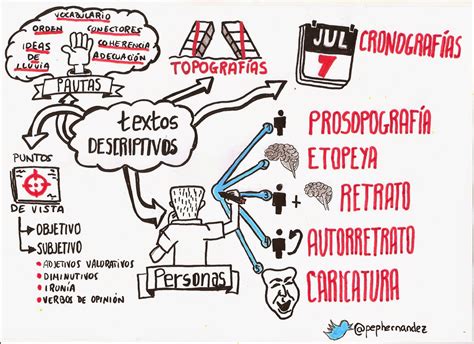 VOCABULARIO
ORDEN
CONECTORES
IDEAS DE LLUVIA
COHERENCIA
ADECUACIÓN
PAUTAS
TOPOGRAFÍAS
JUL
7
CRONOGRAFÍAS
textos
DESCRIPTIVOS
PUNTOS
DE VISTA
OBJETIVO
SUBJETIVO
ADJETIVOS VALORATIVOS
DIMINUTIVOS
IRONÍA
VERBOS DE OPINIÓN
Personas
PROSOPOGRAFÍA
ETOPEYA
+ RETRATO
AUTORRETRATO
CARICATURA
@pephernandez